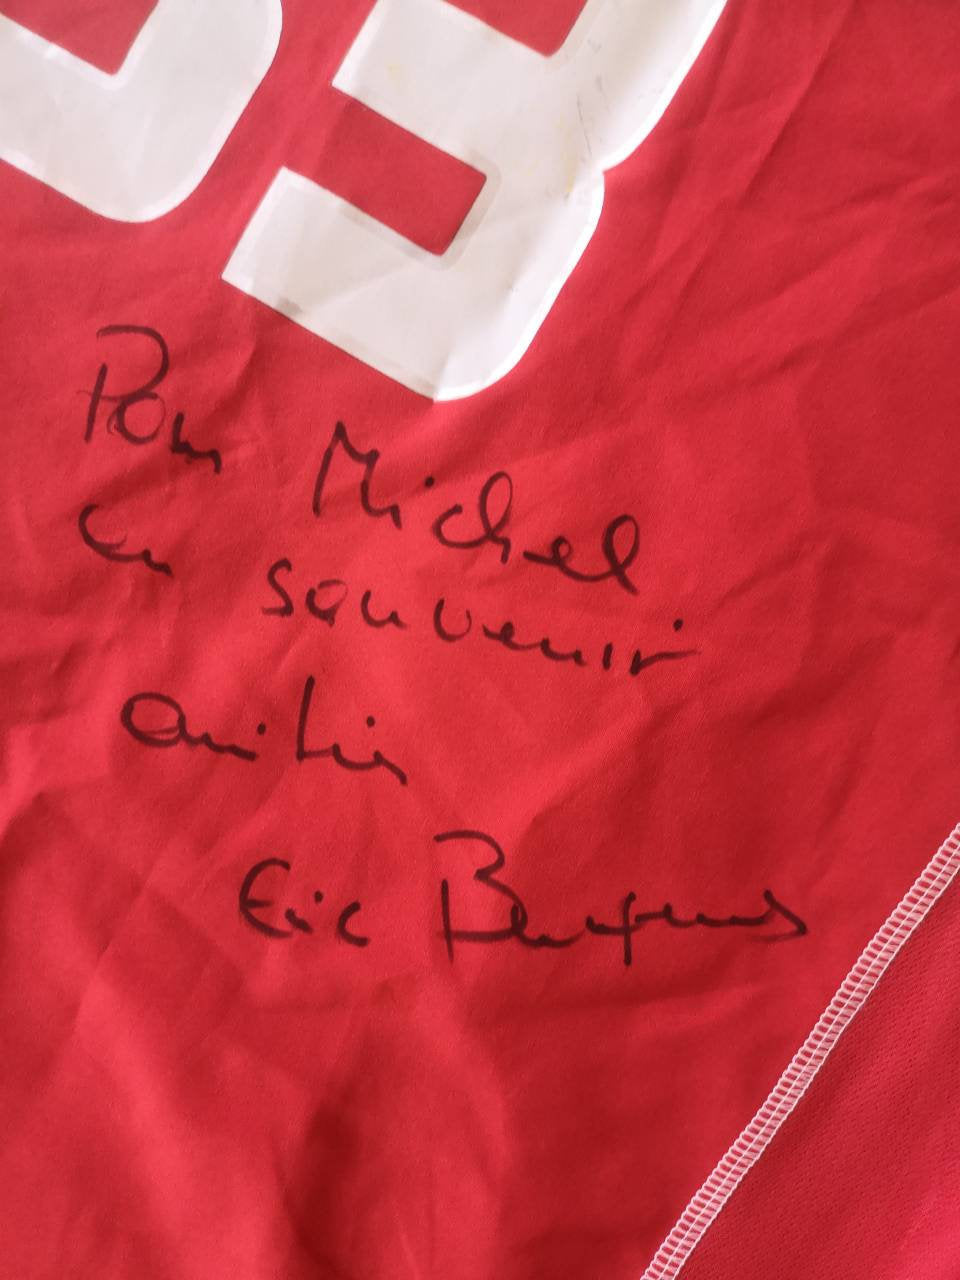 Pour Michel
en souvenir
amitiés
Eric